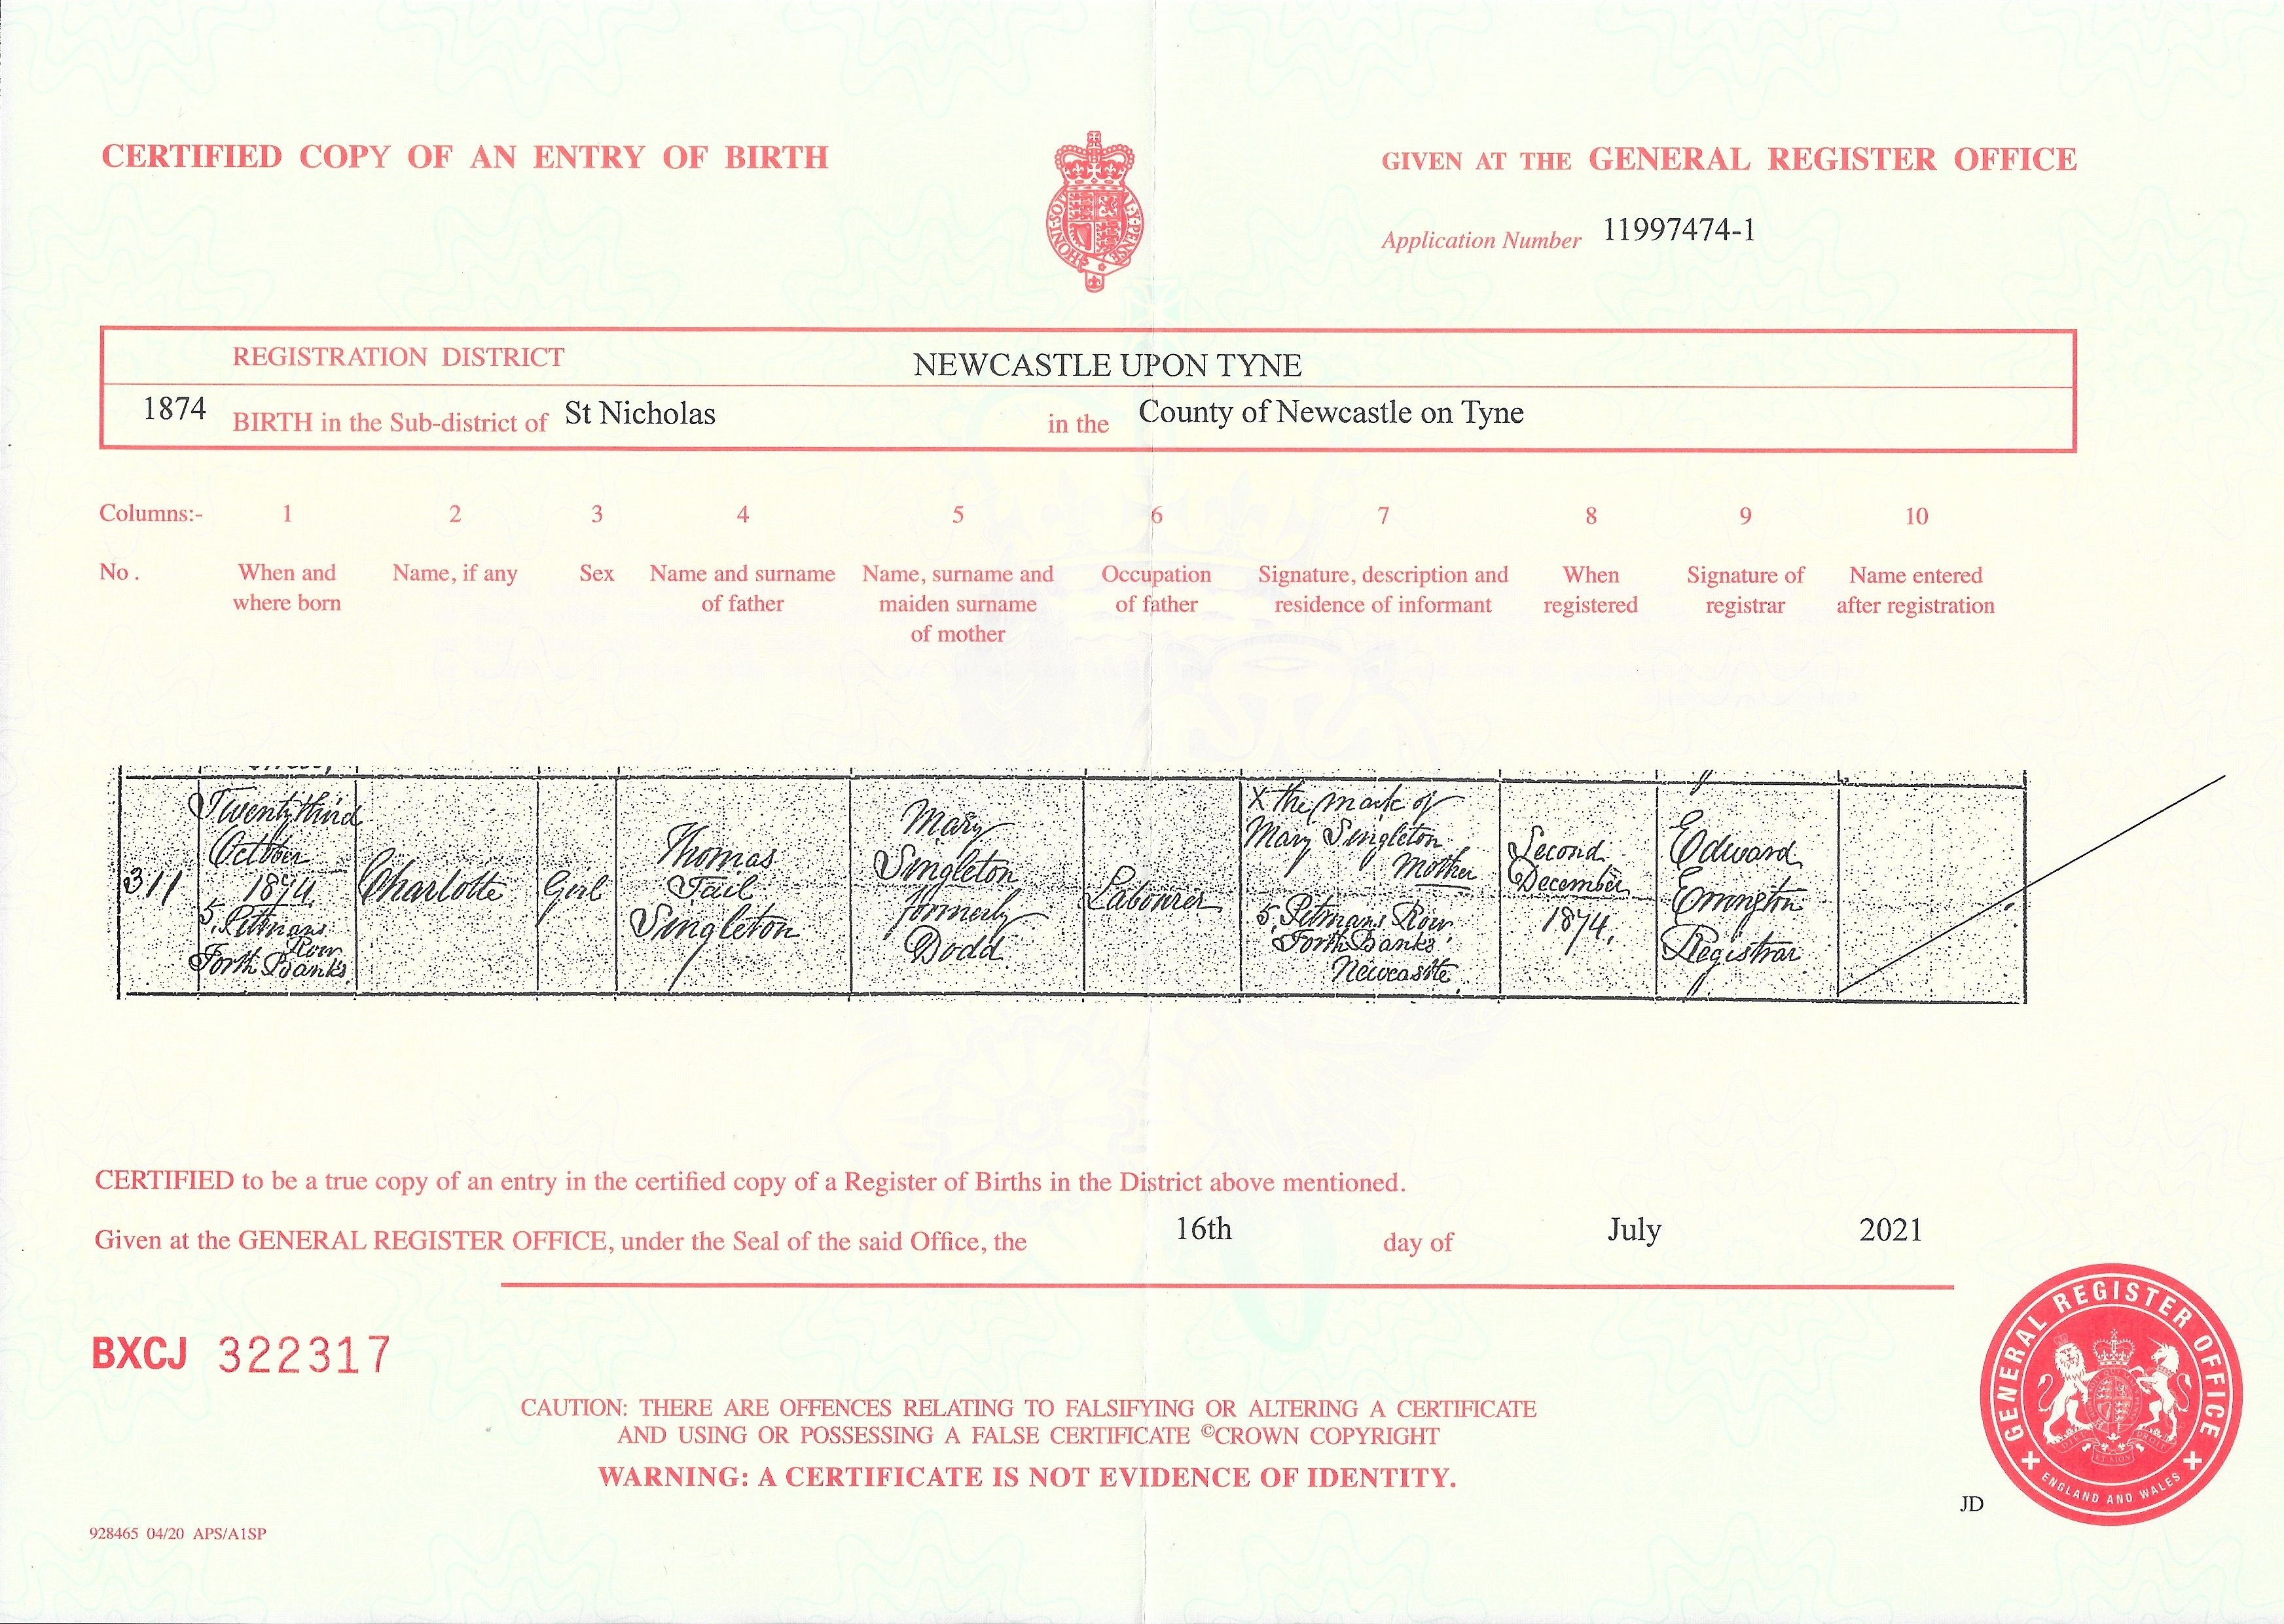 CERTIFIED COPY OF AN ENTRY OF BIRTH
GIVEN AT THE GENERAL REGISTER OFFICE
Application Number 11997474-1
REGISTRATION DISTRICT NEWCASTLE UPON TYNE
1874 BIRTH in the Sub-district of St Nicholas in the County of Newcastle on Tyne
Columns:- 1 2 3 4 5 6 7 8 9 10
No. When and where born
Name, if any
Sex
Name and surname of father
Name, surname and maiden surname of mother
Occupation of father
Signature, description and residence of informant
When registered
Signature of registrar
Name entered after registration
311
Twenty third
October
1874
5, Pittmans
Row
Forth Banks
Charlotte
Girl
Thomas
Singleton
Mary
Singleton
formerly
Dodd
Labourer
X The mark of
Mary Singleton
Mother
5, Pitmans Row
Forth Banks
Newcastle
Second
December
1874.
Edward
Registrar
CERTIFIED to be a true copy of an entry in the certified copy of a Register of Births in the District above mentioned.
Given at the GENERAL REGISTER OFFICE, under the Seal of the said Office, the 16th day of July 2021
BXCJ 322317
CAUTION: THERE ARE OFFENCES RELATING TO FALSIFYING OR ALTERING A CERTIFICATE
AND USING OR POSSESSING A FALSE CERTIFICATE ©CROWN COPYRIGHT
WARNING: A CERTIFICATE IS NOT EVIDENCE OF IDENTITY.
GENERAL REGISTER OFFICE
ENGLAND AND WALES
JD
928465 04/20 APS/A1SP